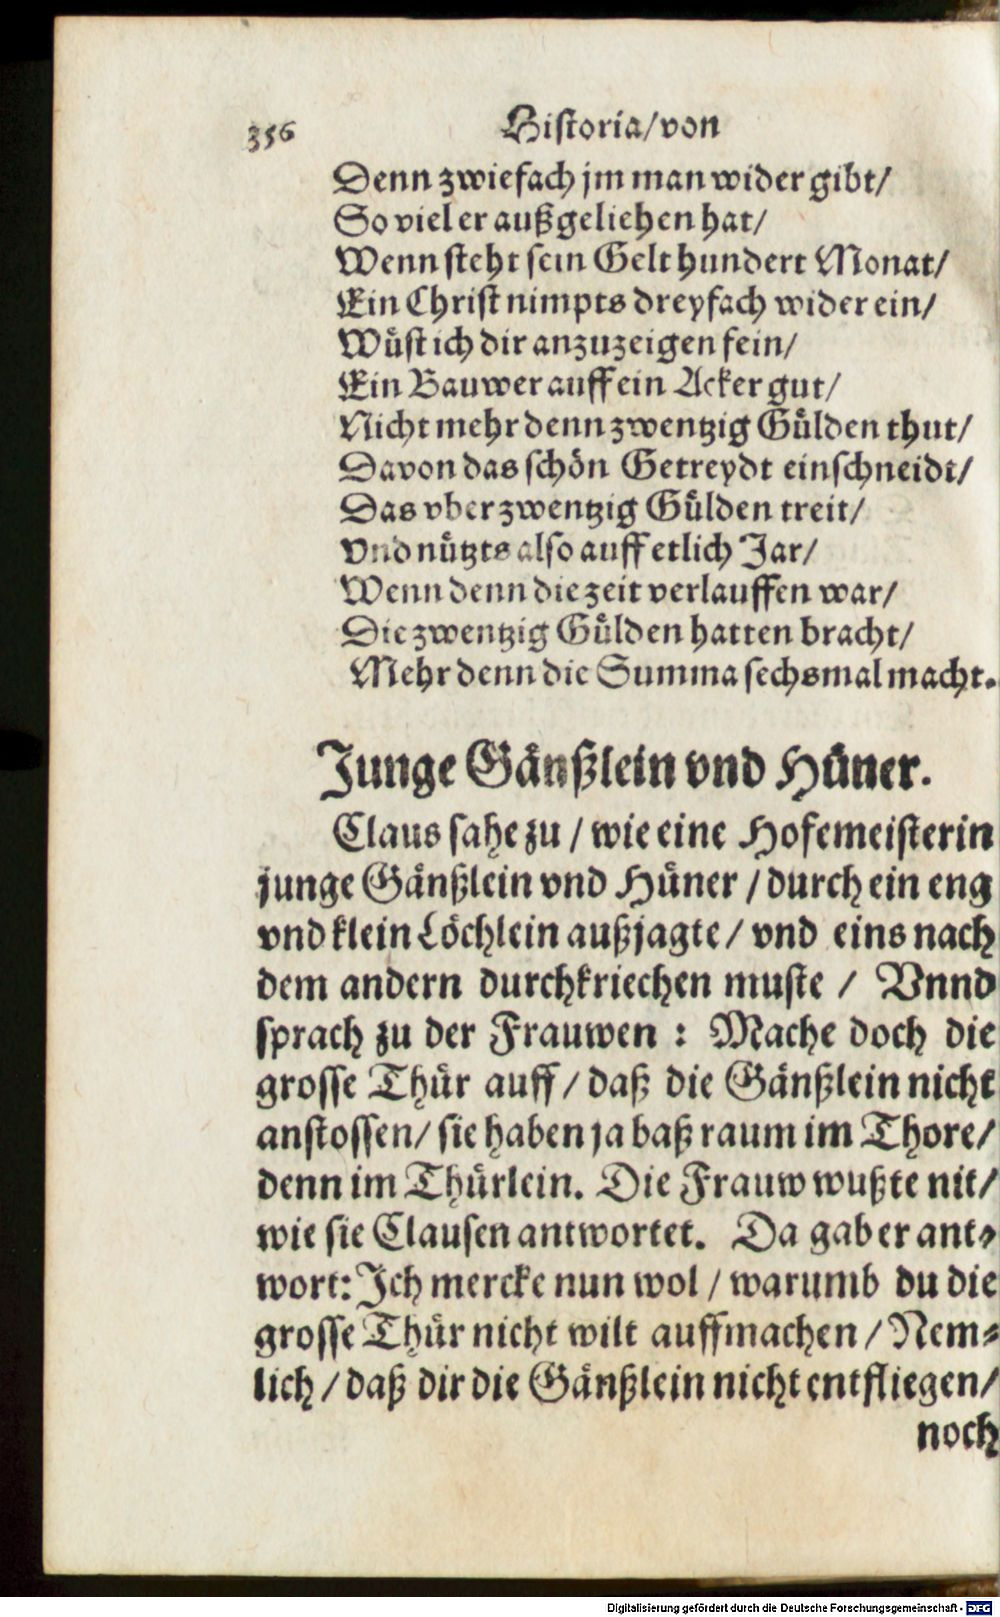 356 Historia/von
Denn zwiefach jm man wider gibt/
So viel er außgeliehen hat/
Wenn steht sein Gelt hundert Monat/
Ein Christ nimpts dreyfach wider ein/
Wüst ich dir anzuzeigen fein/
Ein Bauwer auff ein Acker gut/
Nicht mehr denn zwentzig Gülden thut/
Davon das schön Getreydt einschneidt/
Das vber zwentzig Gülden treit/
Vnd nützts also auff etlich Jar/
Wenn denn die zeit verlauffen war/
Die zwentzig Gülden hatten bracht/
Mehr denn die Summa sechsmal macht.
Junge Gänßlein vnd Hüner.
Claus sahe zu / wie eine Hofemeisterin
junge Gänßlein vnd Hüner / durch ein eng
vnd klein Löchlein außjagte / vnd eins nach
dem andern durchkriechen muste / Vnnd
sprach zu der Frauwen : Mache doch die
grosse Thür auff / daß die Gänßlein nicht
anstossen/ sie haben ja baß raum im Thore/
denn im Thürlein. Die Frauw wußte nit/
wie sie Clausen antwortet. Da gab er ant-
wort: Ich mercke nun wol / warumb du die
grosse Thür nicht wilt auffmachen / Nem-
lich / daß dir die Gänßlein nicht entfliegen/
noch
Digitalisierung gefördert durch die Deutsche Forschungsgemeinschaft - DFG